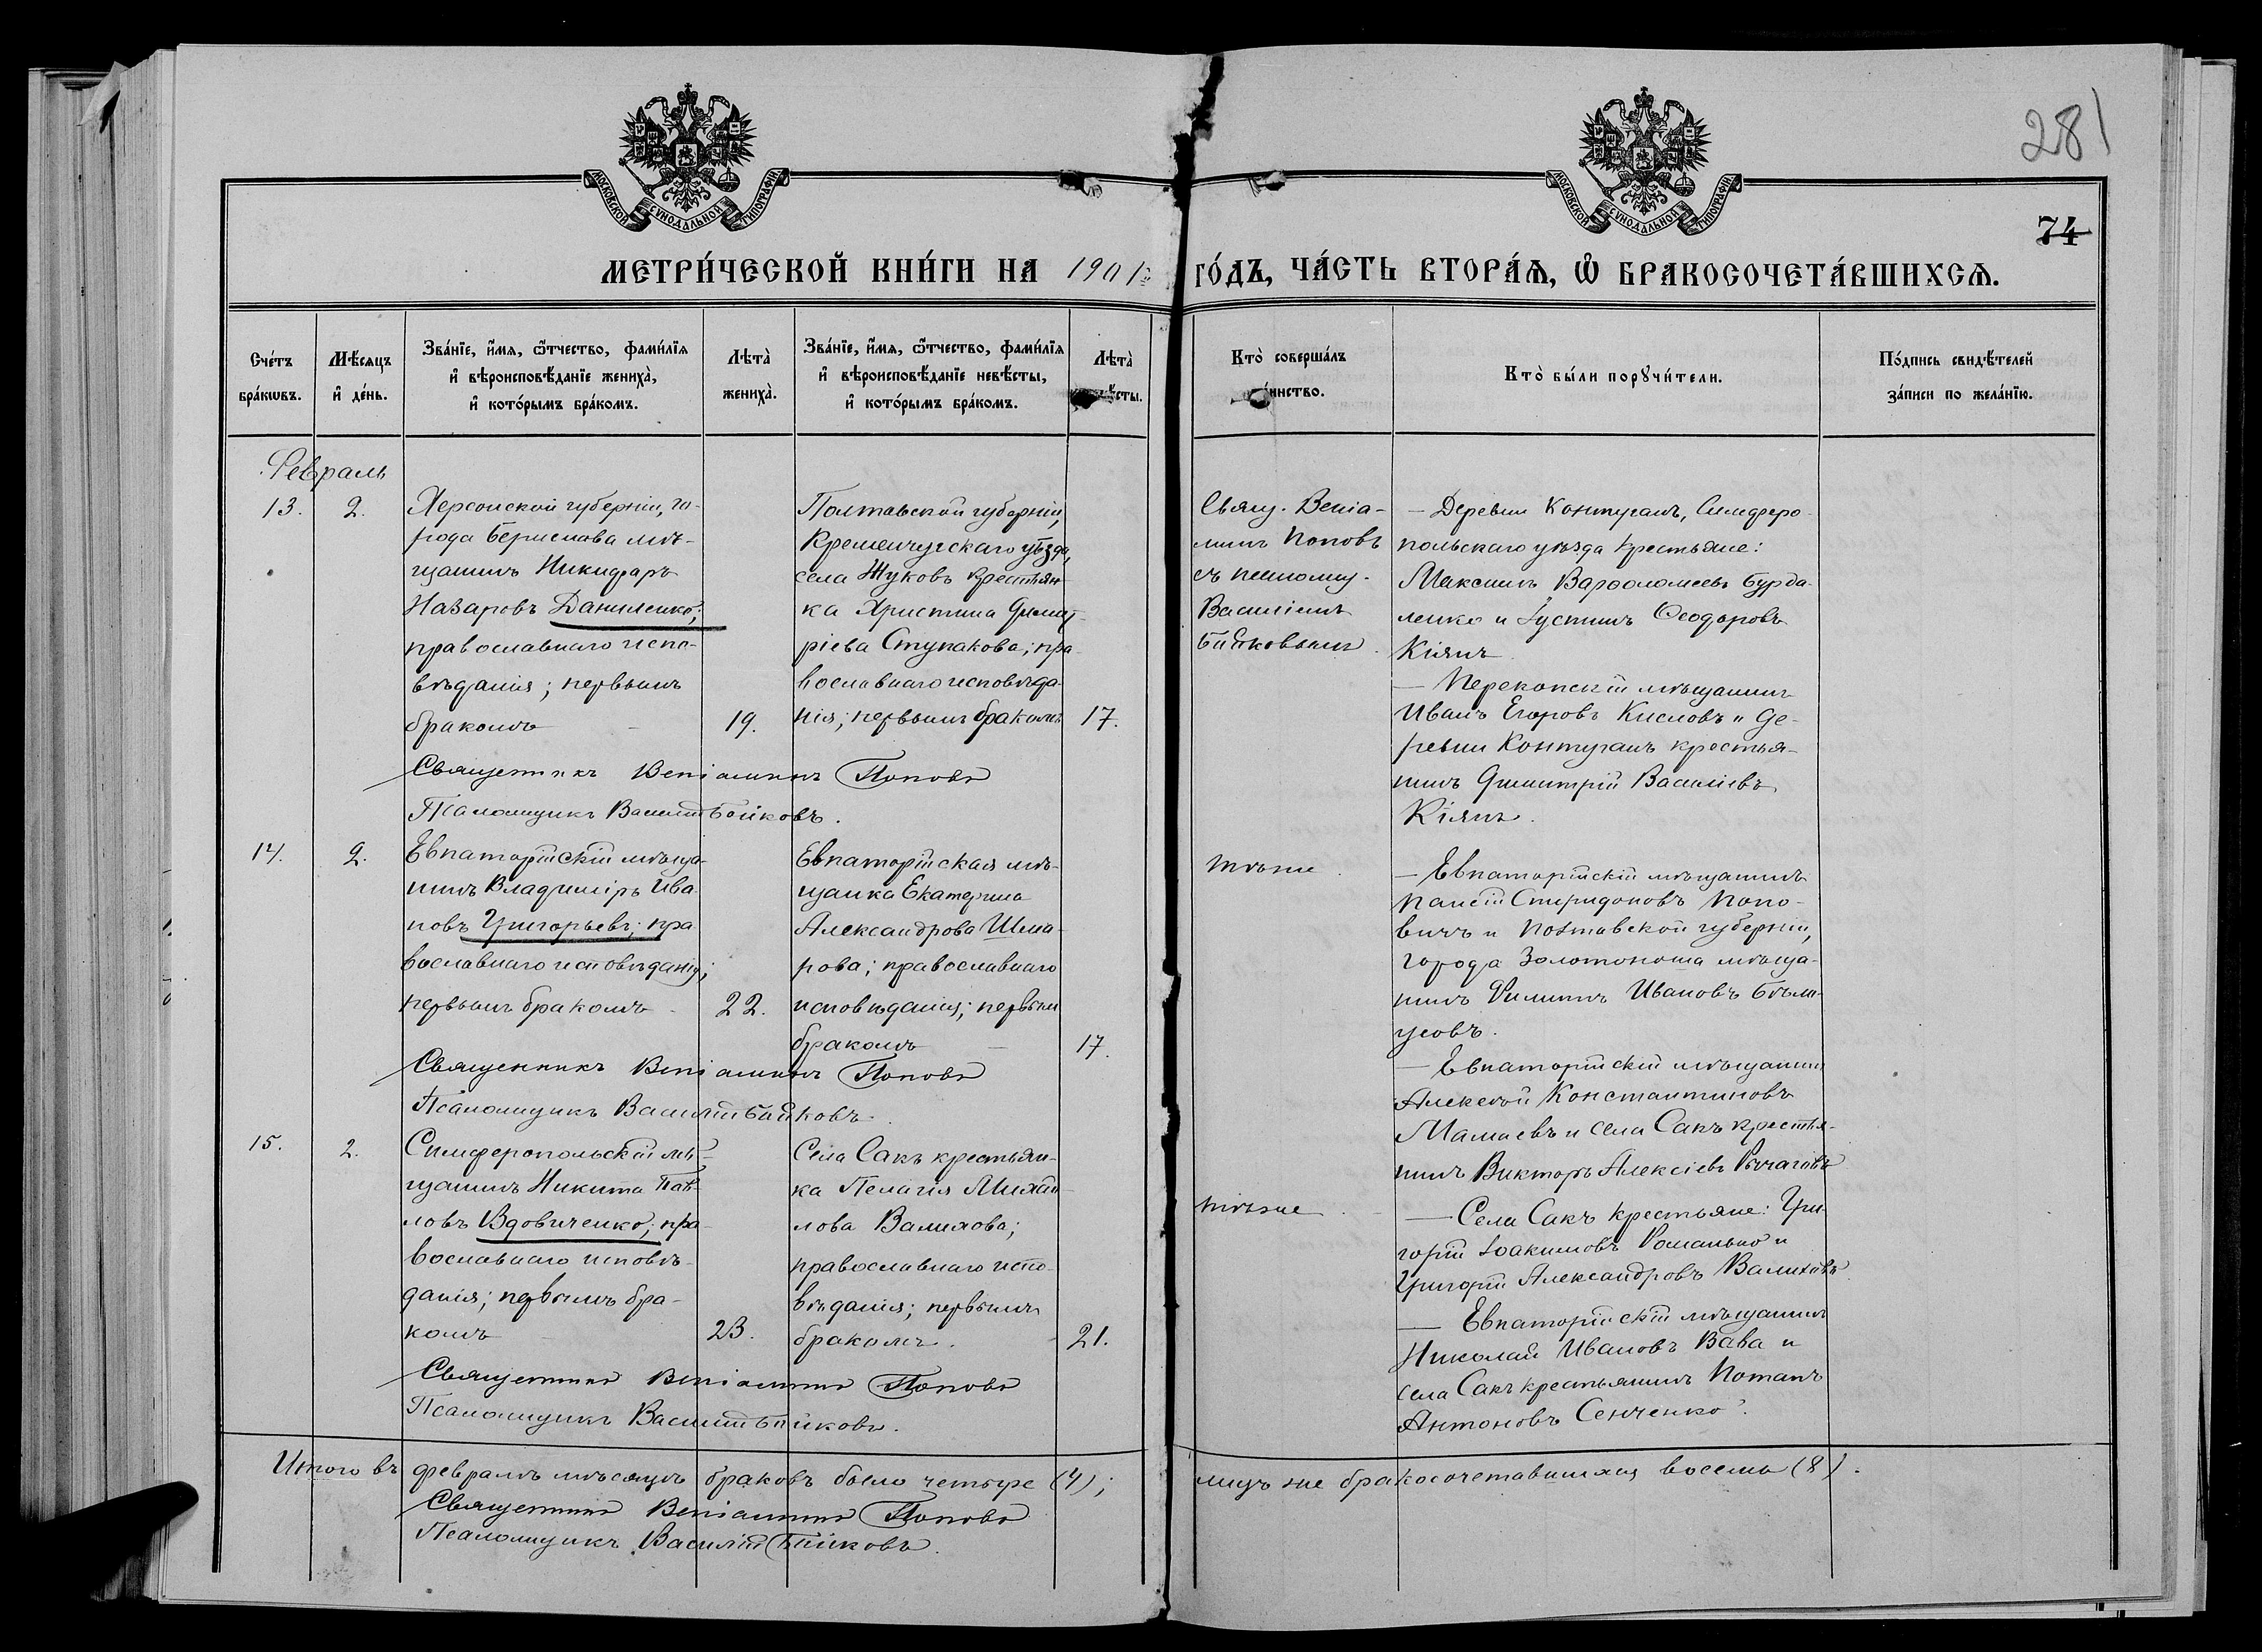 281
74
МОСКОВСКОЙ СѴНОДАЛЬНОЙ ТИПОГРАФІИ
МОСКОВСКОЙ СѴНОДАЛЬНОЙ ТИПОГРАФІИ
МЕТРИ́ЧЕСКОЙ КНИ́ГИ НА 1901 ГО́ДЪ, ЧА́СТЬ ВТОРА́Ѧ, Ѡ҆ БРАКОСОЧЕТА́ВШИХСѦ.
Сче́тъ бра́кѡвъ.
Мѣ́сѧцъ и҆ де́нь.
Зва́нїе, и҆́мѧ, ѻ҆́тчество, фами́лїѧ и҆ вѣроисповѣ́данїе жениха̀, и҆ кото́рымъ бра́комъ.
Лѣта̀ жениха̀.
Зва́нїе, и҆́мѧ, ѻ҆́тчество, фами́лїѧ и҆ вѣроисповѣ́данїе невѣ́сты, и҆ кото́рымъ бра́комъ.
Лѣта̀ ѣ́сты.
Кто̀ соверша́лъ и́нство.
Кто̀ бы́ли порꙋчи́тели.
По́дпись свидѣ́телей за́писи по жела́нїю.
Февраль
13.
2.
Херсонской губерніи, го-
рода Берислава мѣ-
щанинъ Никифоръ
Назаровъ Даниленко;
православнаго испо-
вѣданія; первымъ
бракомъ
19.
Полтавской губерніи,
Кременчугскаго уѣзда,
села Жуковъ крестьян-
ка Христина Димит-
ріева Ступакова; пра-
вославнаго исповѣда-
нія; первымъ бракомъ
17.
Свящ. Веніа-
минъ Поповъ
съ псаломщ.
Василіемъ
Бойковымъ.
— Деревни Контуганъ, Симферо-
польскаго уѣзда крестьяне:
Максимъ Варѳоломеевъ Бурда-
ленко и Іустинъ Ѳеодоровъ
Кіянъ.
— Перекопскій мѣщанинъ
Иванъ Егоровъ Кисловъ и де-
ревни Контуганъ крестья-
нинъ Димитрій Василіевъ
Кіянъ.
Священникъ Веніаминъ Поповъ
Псаломщикъ Василій Бойковъ.
14.
2.
Евпаторійскій мѣща-
нинъ Владиміръ Ива-
новъ Григорьевъ; пра-
вославнаго исповѣданія;
первымъ бракомъ
22.
Евпаторійская мѣ-
щанка Екатерина
Александрова Шма-
рова; православнаго
исповѣданія; первымъ
бракомъ
17.
тѣже.
— Евпаторійскій мѣщанинъ
Паисій Спиридоновъ Попо-
вичъ и Полтавской губерніи,
города Золотоноша мѣща-
нинъ Филиппъ Ивановъ Бѣло-
усовъ.
— Евпаторійскій мѣщанинъ
Алексѣй Константиновъ
Мамаевъ и села Сакъ крестья-
нинъ Викторъ Алексіевъ Рычаговъ
Священникъ Веніаминъ Поповъ
Псаломщикъ Василій Бойковъ.
15.
2.
Симферопольскій мѣ-
щанинъ Никита Пав-
ловъ Вдовиченко; пра-
вославнаго исповѣ-
данія; первымъ бра-
комъ
23.
Села Сакъ крестьян-
ка Пелагія Михай-
лова Валихова;
православнаго испо-
вѣданія; первымъ
бракомъ.
21.
тѣже
— Села Сакъ крестьяне: Гри-
горій Іоакимовъ Романько и
Григорій Александровъ Валиховъ
— Евпаторійскій мѣщанинъ
Николай Ивановъ Вава и
села Сакъ крестьянинъ Потапъ
Антоновъ Сенченко.
Священникъ Веніаминъ Поповъ
Псаломщикъ Василій Бойковъ.
Итого въ февралѣ мѣсяцѣ браковъ было четыре (4); лицъ же бракосочетавшихся восемь (8).
Священникъ Веніаминъ Поповъ
Псаломщикъ Василій Бойковъ.